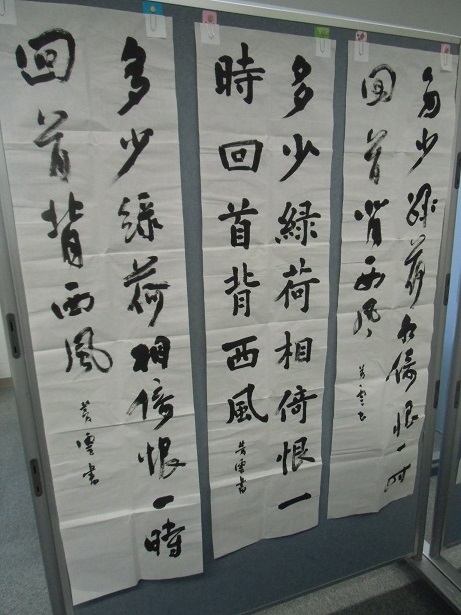 多少緑荷相倚恨一時
回首背西風
雲書
多少緑荷相倚恨一
時回首背西風
雲書
多少緑荷相倚恨一時
回首背西風
雲書